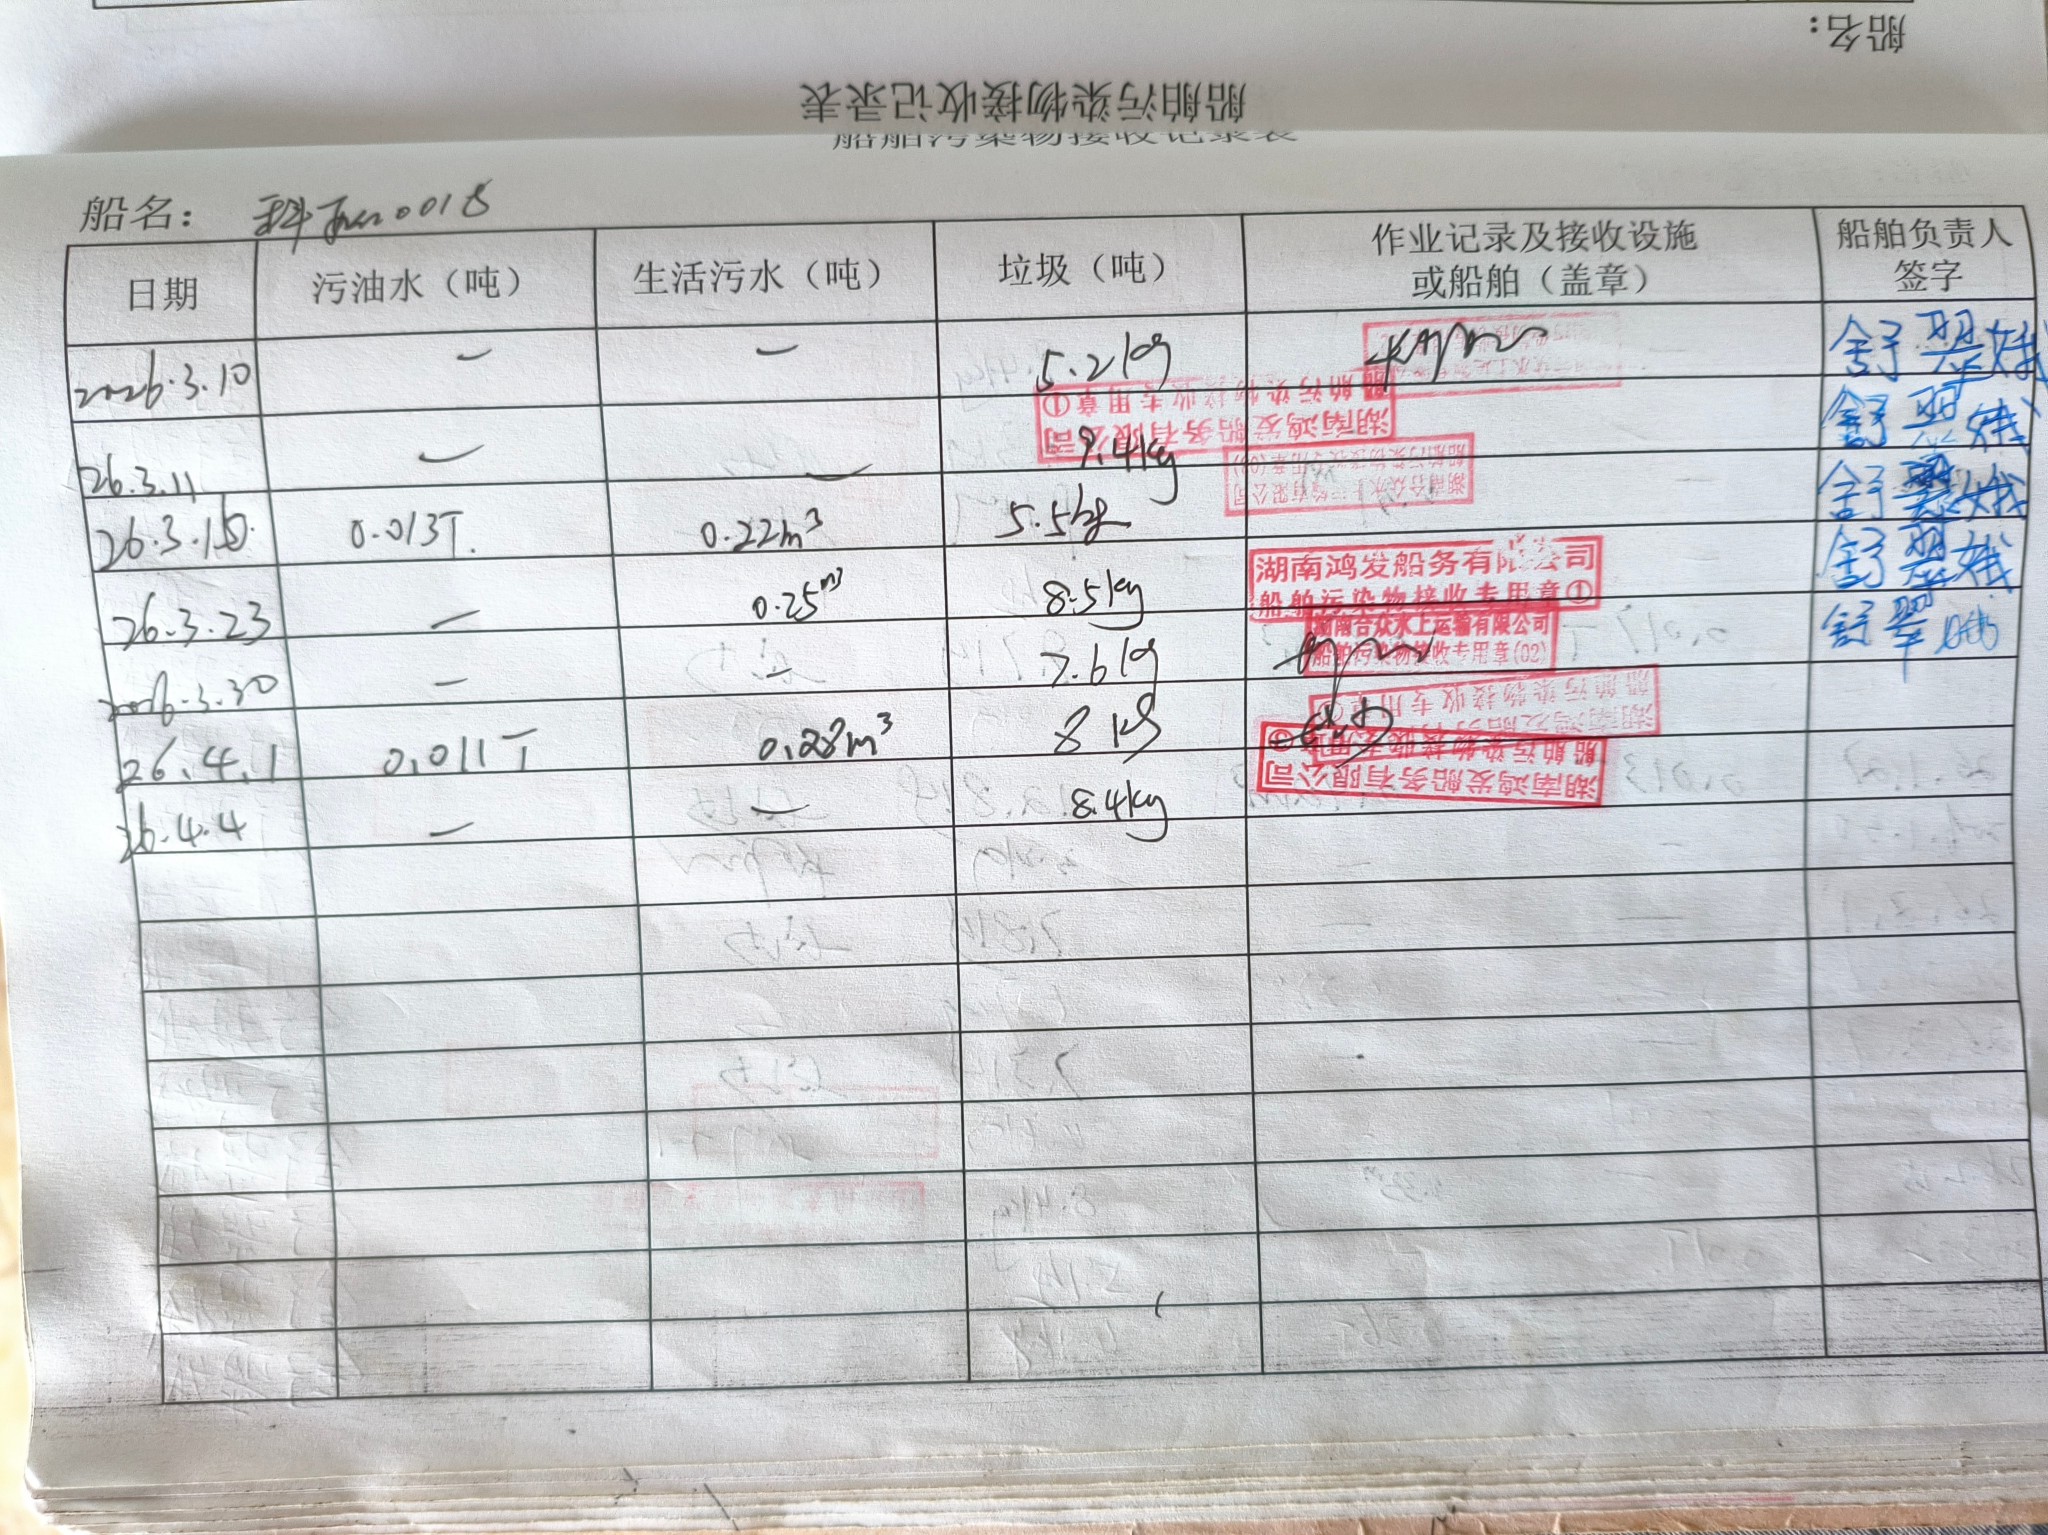 船名：
船舶污染物接收记录表
船舶污染物接收记录表
船名： 0018
日期 污油水（吨） 生活污水（吨） 垃圾（吨） 作业记录及接收设施或船舶（盖章） 船舶负责人签字
2026.3.10 — — 5.2kg 舒翠娥
湖南鸿发船务有限公司
船舶污染物接收专用章①
26.3.11 — — 9.4kg 舒翠娥
湖南合众水上运输有限公司
船舶污染物接收专用章(02)
26.3.15 0.013T 0.22m³ 5.5kg 舒翠娥
26.3.23 — 0.25m³ 8.5kg 舒翠娥
湖南鸿发船务有限公司
船舶污染物接收专用章①
2026.3.30 — — 7.6kg 舒翠娥
湖南合众水上运输有限公司
船舶污染物接收专用章(02)
26.4.1 0.011T 0.28m³ 8kg
湖南鸿发船务有限公司
船舶污染物接收专用章
26.4.4 — — 8.4kg
湖南鸿发船务有限公司
船舶污染物接收专用章